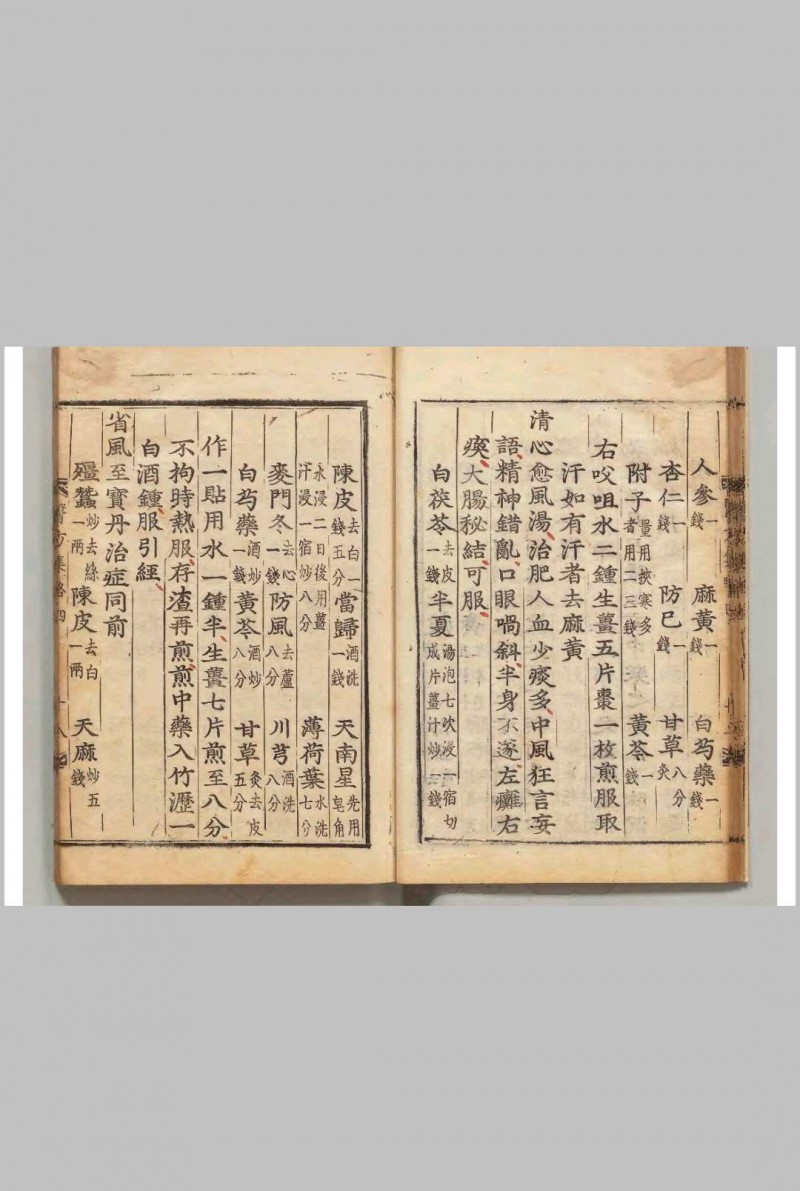 人參一錢 麻黃一錢 白芍藥一錢
杏仁一錢 防已一錢 甘草八分灸
附子量用挾寒多者用二三錢 黃芩一錢
右㕮咀水二鍾生薑五片棗一枚煎服取
汗如有汗者去麻黃
清心愈風湯治肥人血少痰多中風狂言妄
語精神錯亂口眼喎斜半身不遂左癱右
瘓大腸秘結可服
白茯苓去皮一錢 半夏湯泡七次浸一宿切成片薑汁炒一錢
陳皮去白一錢五分 當歸酒洗一錢 天南星先用皂角
水浸二日後用薑汁浸一宿炒八分 薄荷葉水洗七分
麥門冬去心一錢 防風去蘆八分 川芎酒洗八分
白芍藥酒炒一錢 黃芩酒炒八分 甘草灸去皮五分
作一貼用水一鍾半生薑七片煎至八分
不拘時熱服存渣再煎煎中藥入竹瀝一
白酒鍾服引經
省風至寶丹治症同前
殭蠶炒去絲一兩 陳皮去白一兩 天麻炒五錢
醫方集略四
十八